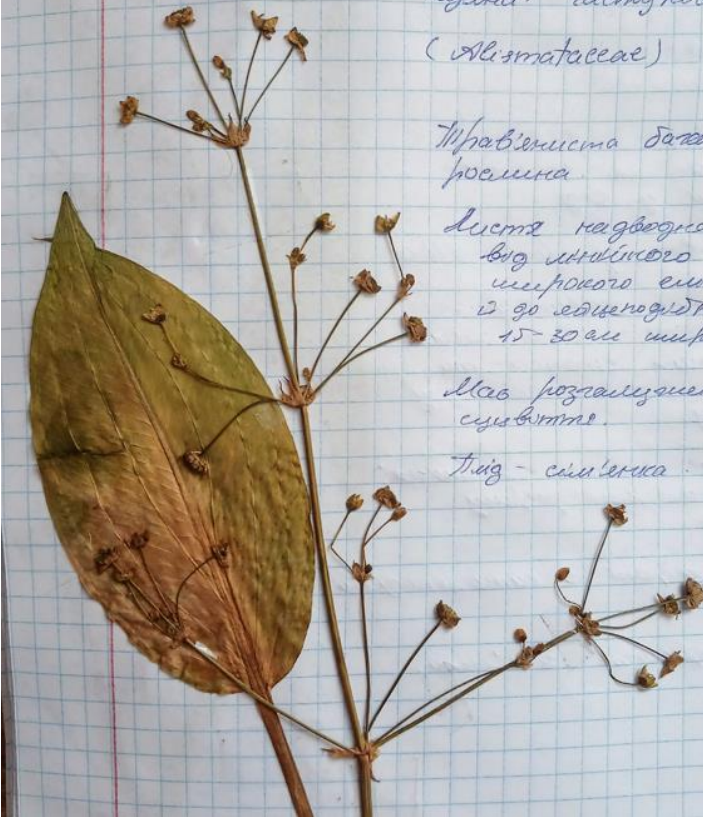 (Alismataceae)
Трав'яниста бага
рослина.
Листя надводне
від лінійного
широкого ел
й до яйцеподіб
15-30 см шир
Має розгалужен
суцвіття.
Плід - сім'янка.